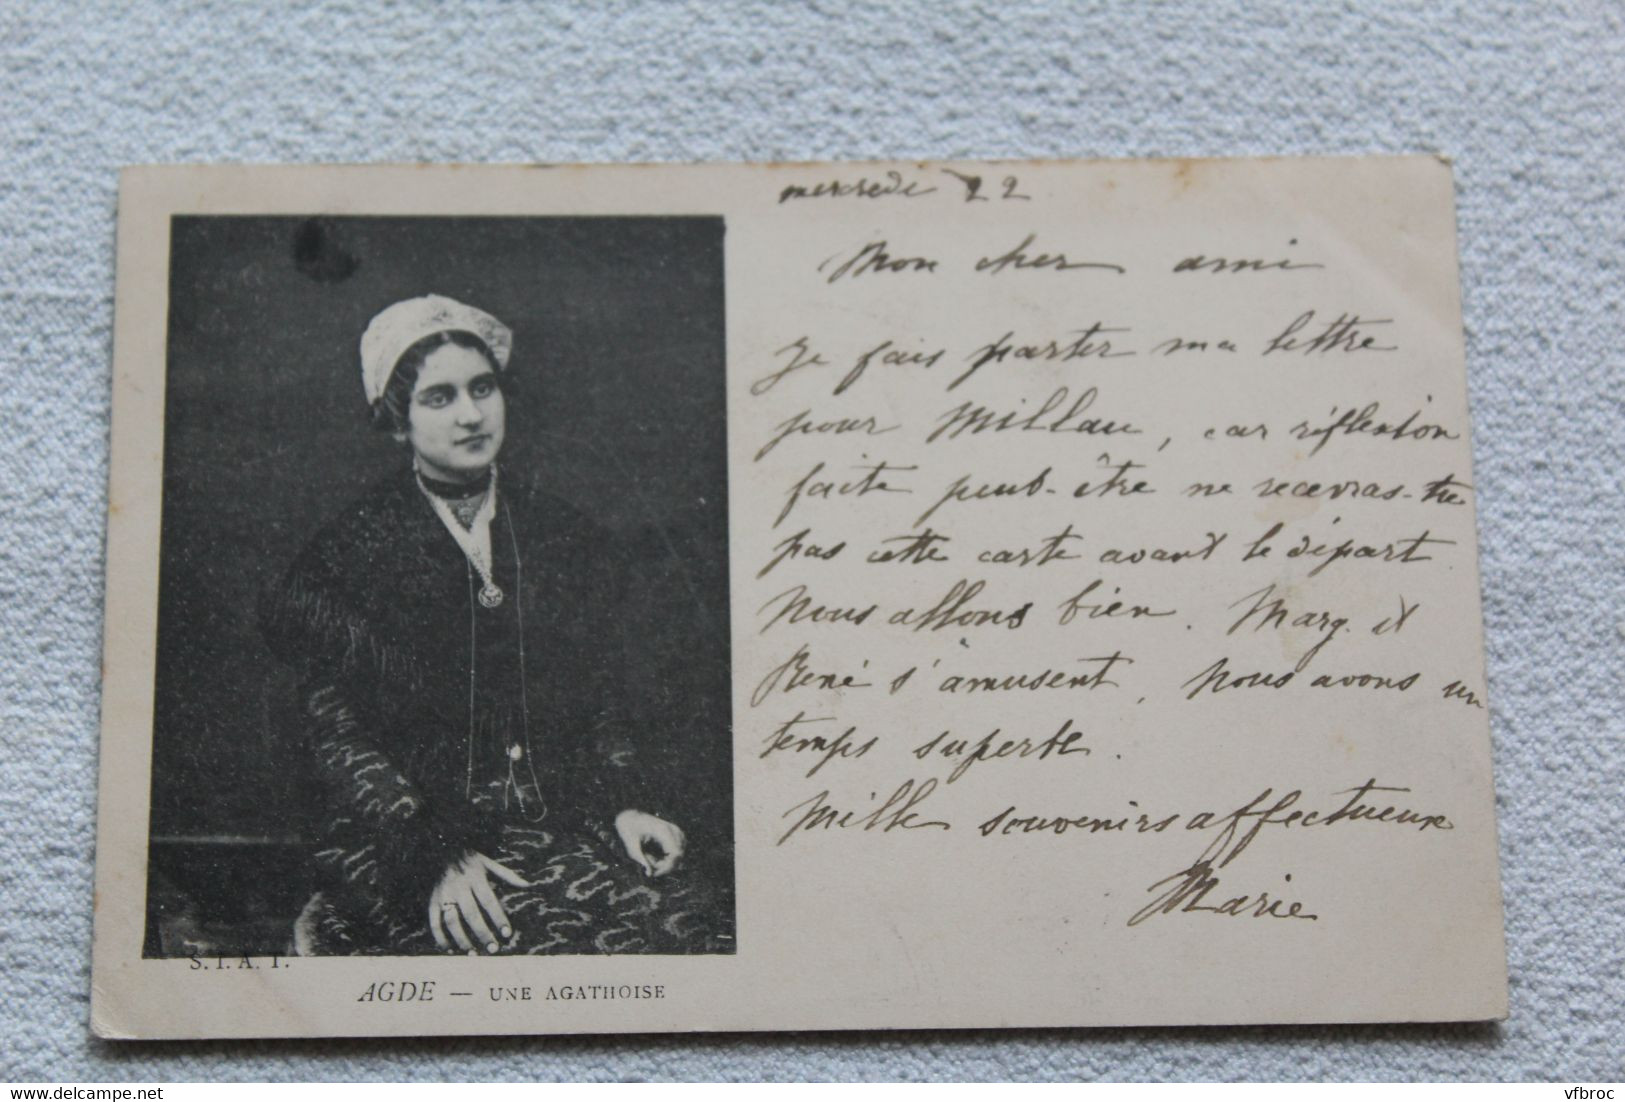 mercredi 22
Mon cher ami
Je fais parter ma lettre
pour Millau, car réflexion
faite peut-être ne recevras-tu
pas cette carte avant le départ
Nous allons bien. Marg. et
René s'amusent, nous avons un
temps superbe.
Mille souvenirs affectueux
Marie
S. I. A. T.
AGDE — UNE AGATHOISE
delcampe.net
vfbroc